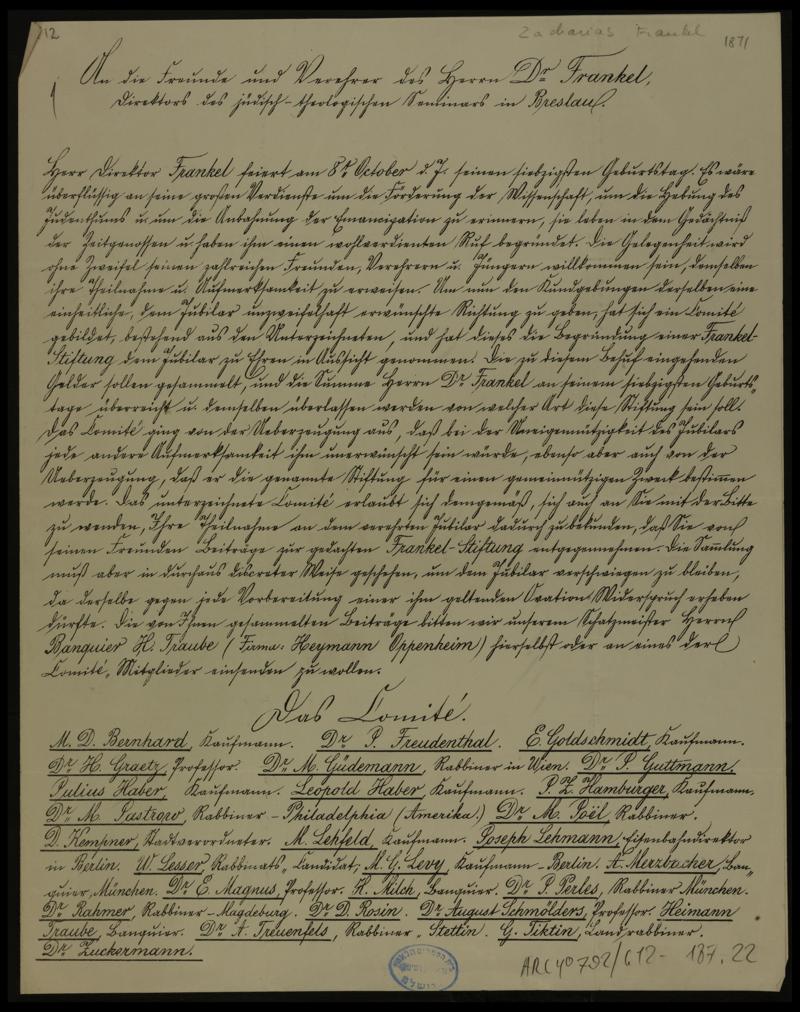 12
Zacharias Frankel
1871
An die Freunde und Verehrer des Herrn Dr Frankel,
Direktors des jüdisch-theologischen Seminars in Breslau.
Herr Direktor Frankel feiert am 8t October d. J. seinen siebzigsten Geburtstag. Es wäre
überflüssig an seine großen Verdienste um die Förderung der Wissenschaft, um die Hebung des
Judenthums u. um die Anbahnung der Emancipation zu erinnern, sie leben in dem Gedächtniß
der Zeitgenossen u. haben ihm einen wohlverdienten Ruf begründet. Die Gelegenheit wird
ohne Zweifel seinen zahlreichen Freunden, Verehrern u. Jüngern willkommen sein, demselben
ihre Theilnahme u. Aufmerksamkeit zu erweisen. Um nun den Kundgebungen derselben eine
einheitliche, dem Jubilar unzweifelhaft erwünschte Richtung zu geben, hat sich ein Comité
gebildet, bestehend aus den Unterzeichneten, und hat dieses die Begründung einer Frankel-
Stiftung dem Jubilar zu Ehren in Aussicht genommen. Die zu diesem Behuf eingehenden
Gelder sollen gesammelt, und die Summe Herrn Dr Frankel an seinem siebzigsten Geburts-
tage überreicht u. demselben überlassen werden von welcher Art diese Stiftung sein soll.
Das Comité ging von der Ueberzeugung aus, daß bei der Uneigennützigkeit des Jubilars
jede andere Aufmerksamkeit ihm unerwünscht sein würde, ebenso aber auch von der
Ueberzeugung, daß er die genannte Stiftung für einen gemeinnützigen Zweck bestimmen
werde. Das unterzeichnete Comité erlaubt sich demgemäß, sich auch an Sie mit der Bitte
zu wenden, Ihre Theilnahme an dem verehrten Jubilar dadurch zu bekunden, daß Sie von
seinen Freunden Beiträge zur gedachten Frankel-Stiftung entgegennehmen. Die Sammlung
muß aber in durchaus discreter Weise geschehen, um dem Jubilar verschwiegen zu bleiben,
da derselbe gegen jede Vorbereitung einer ihm geltenden Ovation Widerspruch erheben
dürfte. Die von Ihnen gesammelten Beiträge bitten wir unserem Schatzmeister Herrn
Banquier H. Traube (Firma: Heymann Oppenheim) hierselbst oder an eines der
Comité-Mitglieder einsenden zu wollen.
Das Comité.
M. D. Bernhard, Kaufmann. Dr J. Freudenthal. E. Goldschmidt, Kaufmann.
Dr H. Graetz, Professor. Dr M. Güdemann, Rabbiner in Wien. Dr J. Guttmann.
Julius Haber, Kaufmann. Leopold Haber, Kaufmann. J. Z. Hamburger, Kaufmann.
Dr M. Jastrow, Rabbiner - Philadelphia (Amerika.) Dr M. Joël, Rabbiner.
D. Kempner, Stadtverordneter. M. Lehfeld, Kaufmann. Joseph Lehmann, Eisenbahndirektor
in Berlin. W. Lesser, Rabbinats-Candidat, M. G. Levy, Kaufmann - Berlin. A. Merzbacher, Ban-
quier, München. Dr E. Magnus, Professor. H. Milch, Banquier. Dr J. Perles, Rabbiner München.
Dr Rahmer, Rabbiner - Magdeburg. Dr D. Rosin. Dr August Schmölders, Professor. Heimann
Traube, Banquier. Dr A. Treuenfels, Rabbiner, Stettin. G. Tiktin, Landrabbiner.
Dr Zuckermann.
ARC 4° 792/C12 - 187.22